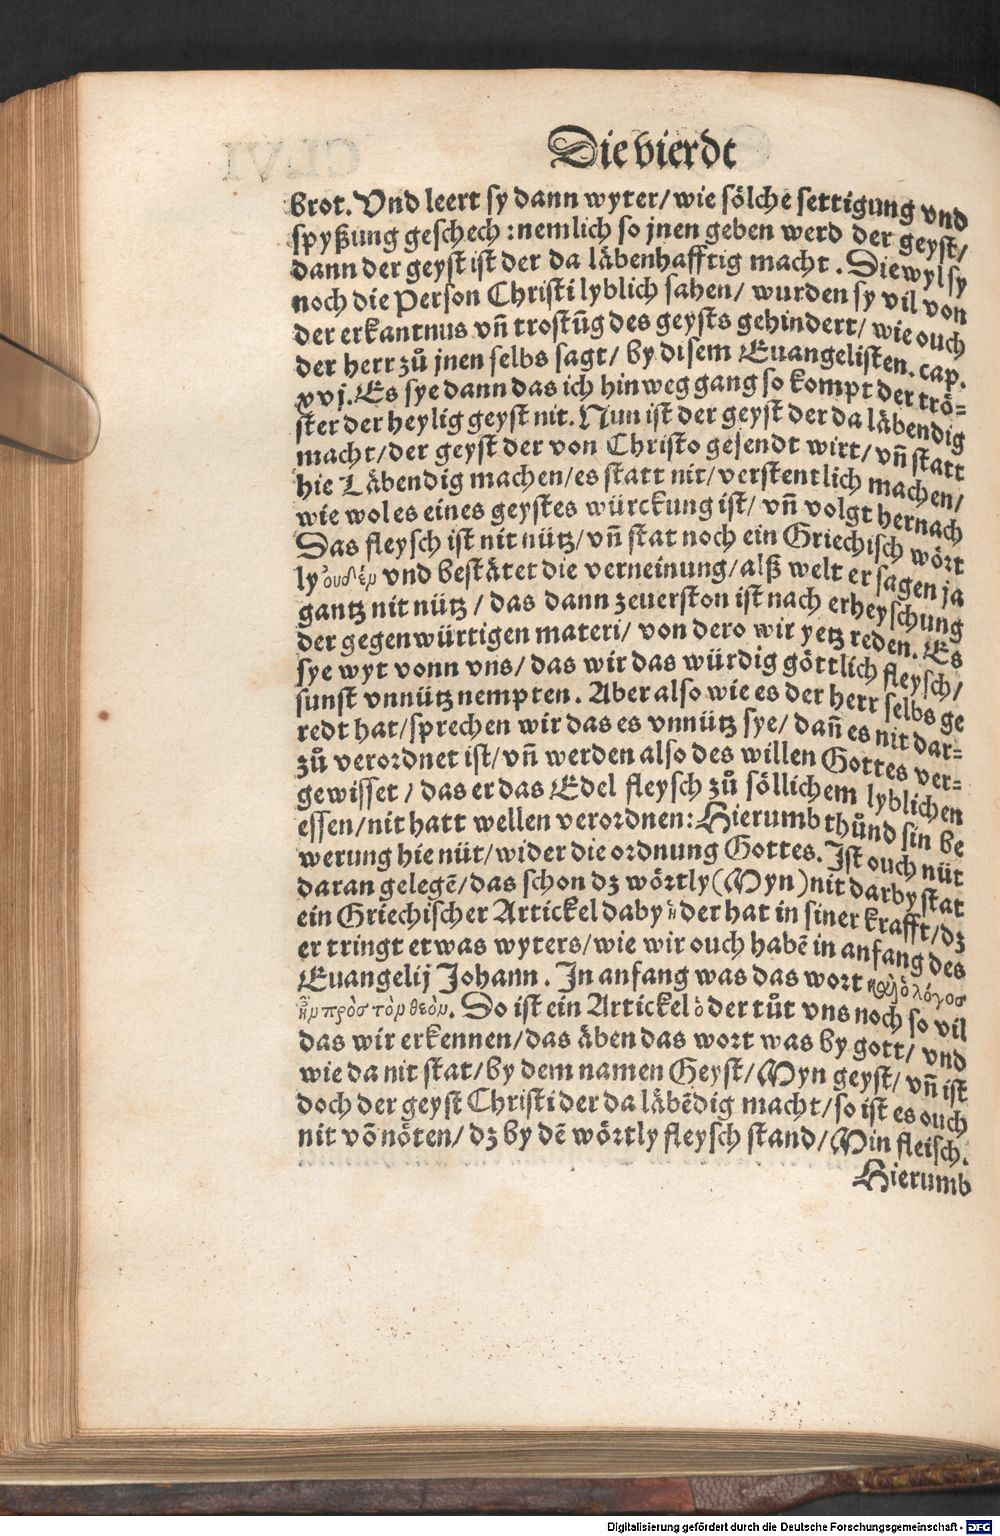 Die vierdt
brot. Vnd leert sy dann wyter/ wie sölche settigung vnd
spyßung geschech: nemlich so jnen geben werd der geyst/
dann der geyst ist der da läbenhafftig macht. Diewyl sy
noch die Person Christi lyblich sahen/ wurden sy vil von
der erkantnus vñ trostũg des geysts gehindert/ wie ouch
der herr zů jnen selbs sagt/ by disem Euangelisten. cap.
xvj. Es sye dann das ich hinweg gang so kompt der trö-
ster der heylig geyst nit. Nun ist der geyst der da läbendig
macht/ der geyst der von Christo gesendt wirt/ vñ statt
hie Läbendig machen/ es statt nit/ verstentlich machen/
wie wol es eines geystes würckung ist/ vñ volgt hernach
Das fleysch ist nit nütz/ vñ stat noch ein Griechisch wört
ly οὐδὲν vnd bestätet die verneinung/ alß welt er sagen ja
gantz nit nütz/ das dann zeuerston ist nach erheyschung
der gegenwürtigen materi/ von dero wir yetz reden. Es
sye wyt vonn vns/ das wir das würdig göttlich fleysch/
sunst vnnütz nempten. Aber also wie es der herr selbs ge
redt hat/ sprechen wir das es vnnütz sye/ dañ es nit dar-
zů verordnet ist/ vñ werden also des willen Gottes ver-
gewisset/ das er das Edel fleysch zů söllichem lyblichen
essen/ nit hatt wellen verordnen: Hierumb thůnd sin be
werung hie nüt/ wider die ordnung Gottes. Ist ouch nüt
daran gelegẽ/ das schon dz wörtly (Myn) nit darby stat
ein Griechischer Artickel daby ἡ der hat in siner krafft/ dz
er tringt etwas wyters/ wie wir ouch habẽ in anfang des
Euangelij Johann. In anfang was das wort καὶ ὁ λόγος
ἦν πρὸς τὸν θεὸν. Do ist ein Artickel ὁ der tůt vns noch so vil
das wir erkennen/ das äben das wort was by gott/ vnd
wie da nit stat/ by dem namen Geyst/ Myn geyst/ vñ ist
doch der geyst Christi der da läbẽdig macht/ so ist es ouch
nit võ nöten/ dz by dẽ wörtly fleysch stand/ Min fleisch.
Hierumb
Digitalisierung gefördert durch die Deutsche Forschungsgemeinschaft - DFG